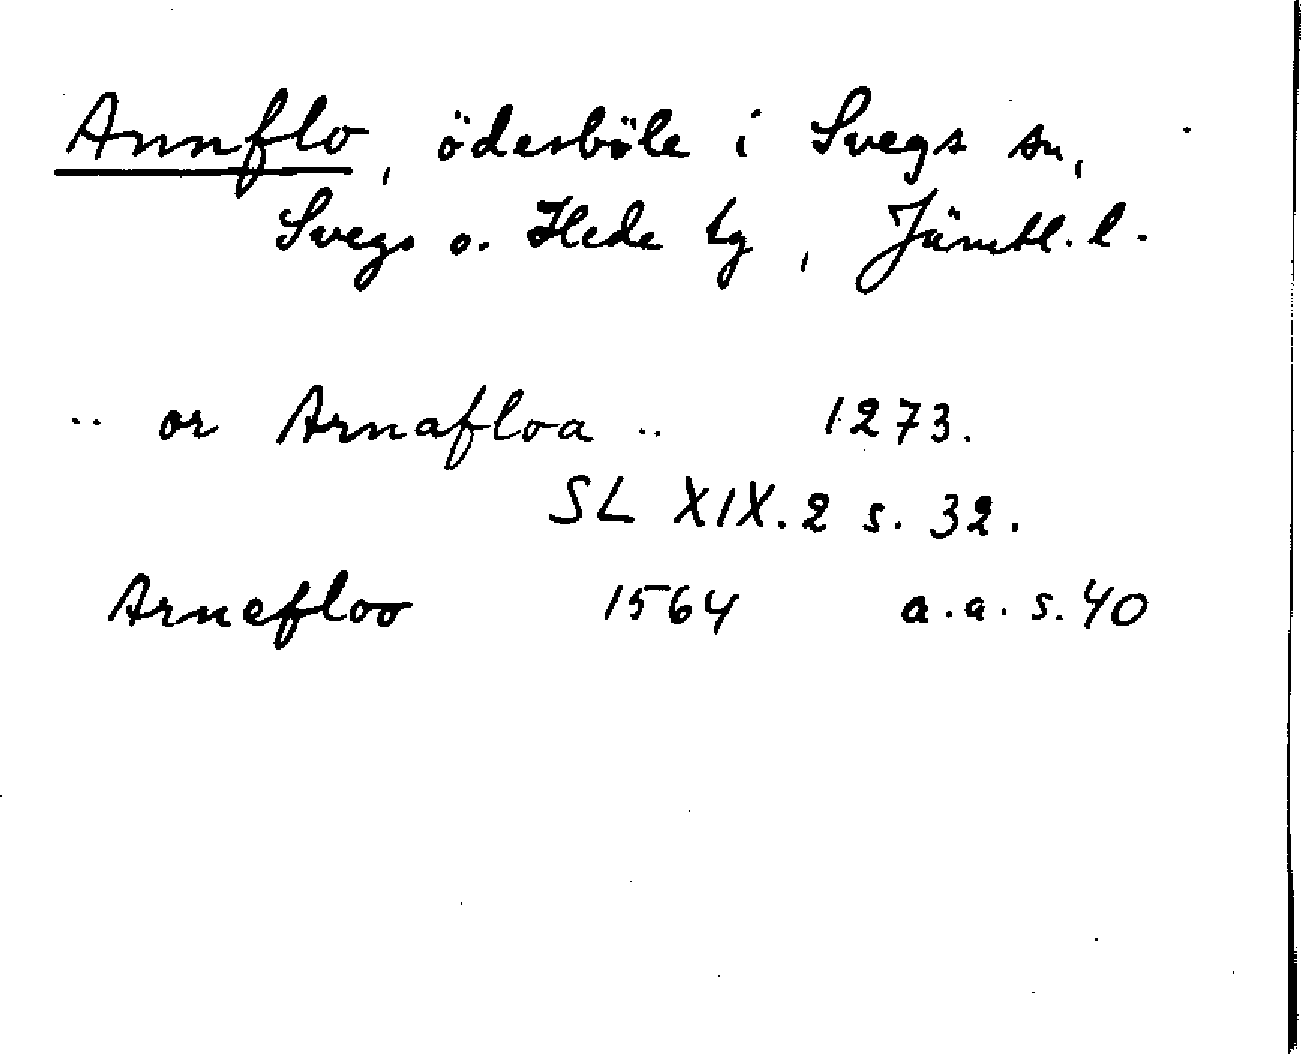 Annflo, ödesböle i Svegs sn,
Svegs o. Hede tg, Jämtl. l.
.. or Arnafloa .. 1273.
SL XIX.2 s. 32.
Arnefloo 1564 a.a. s. 40